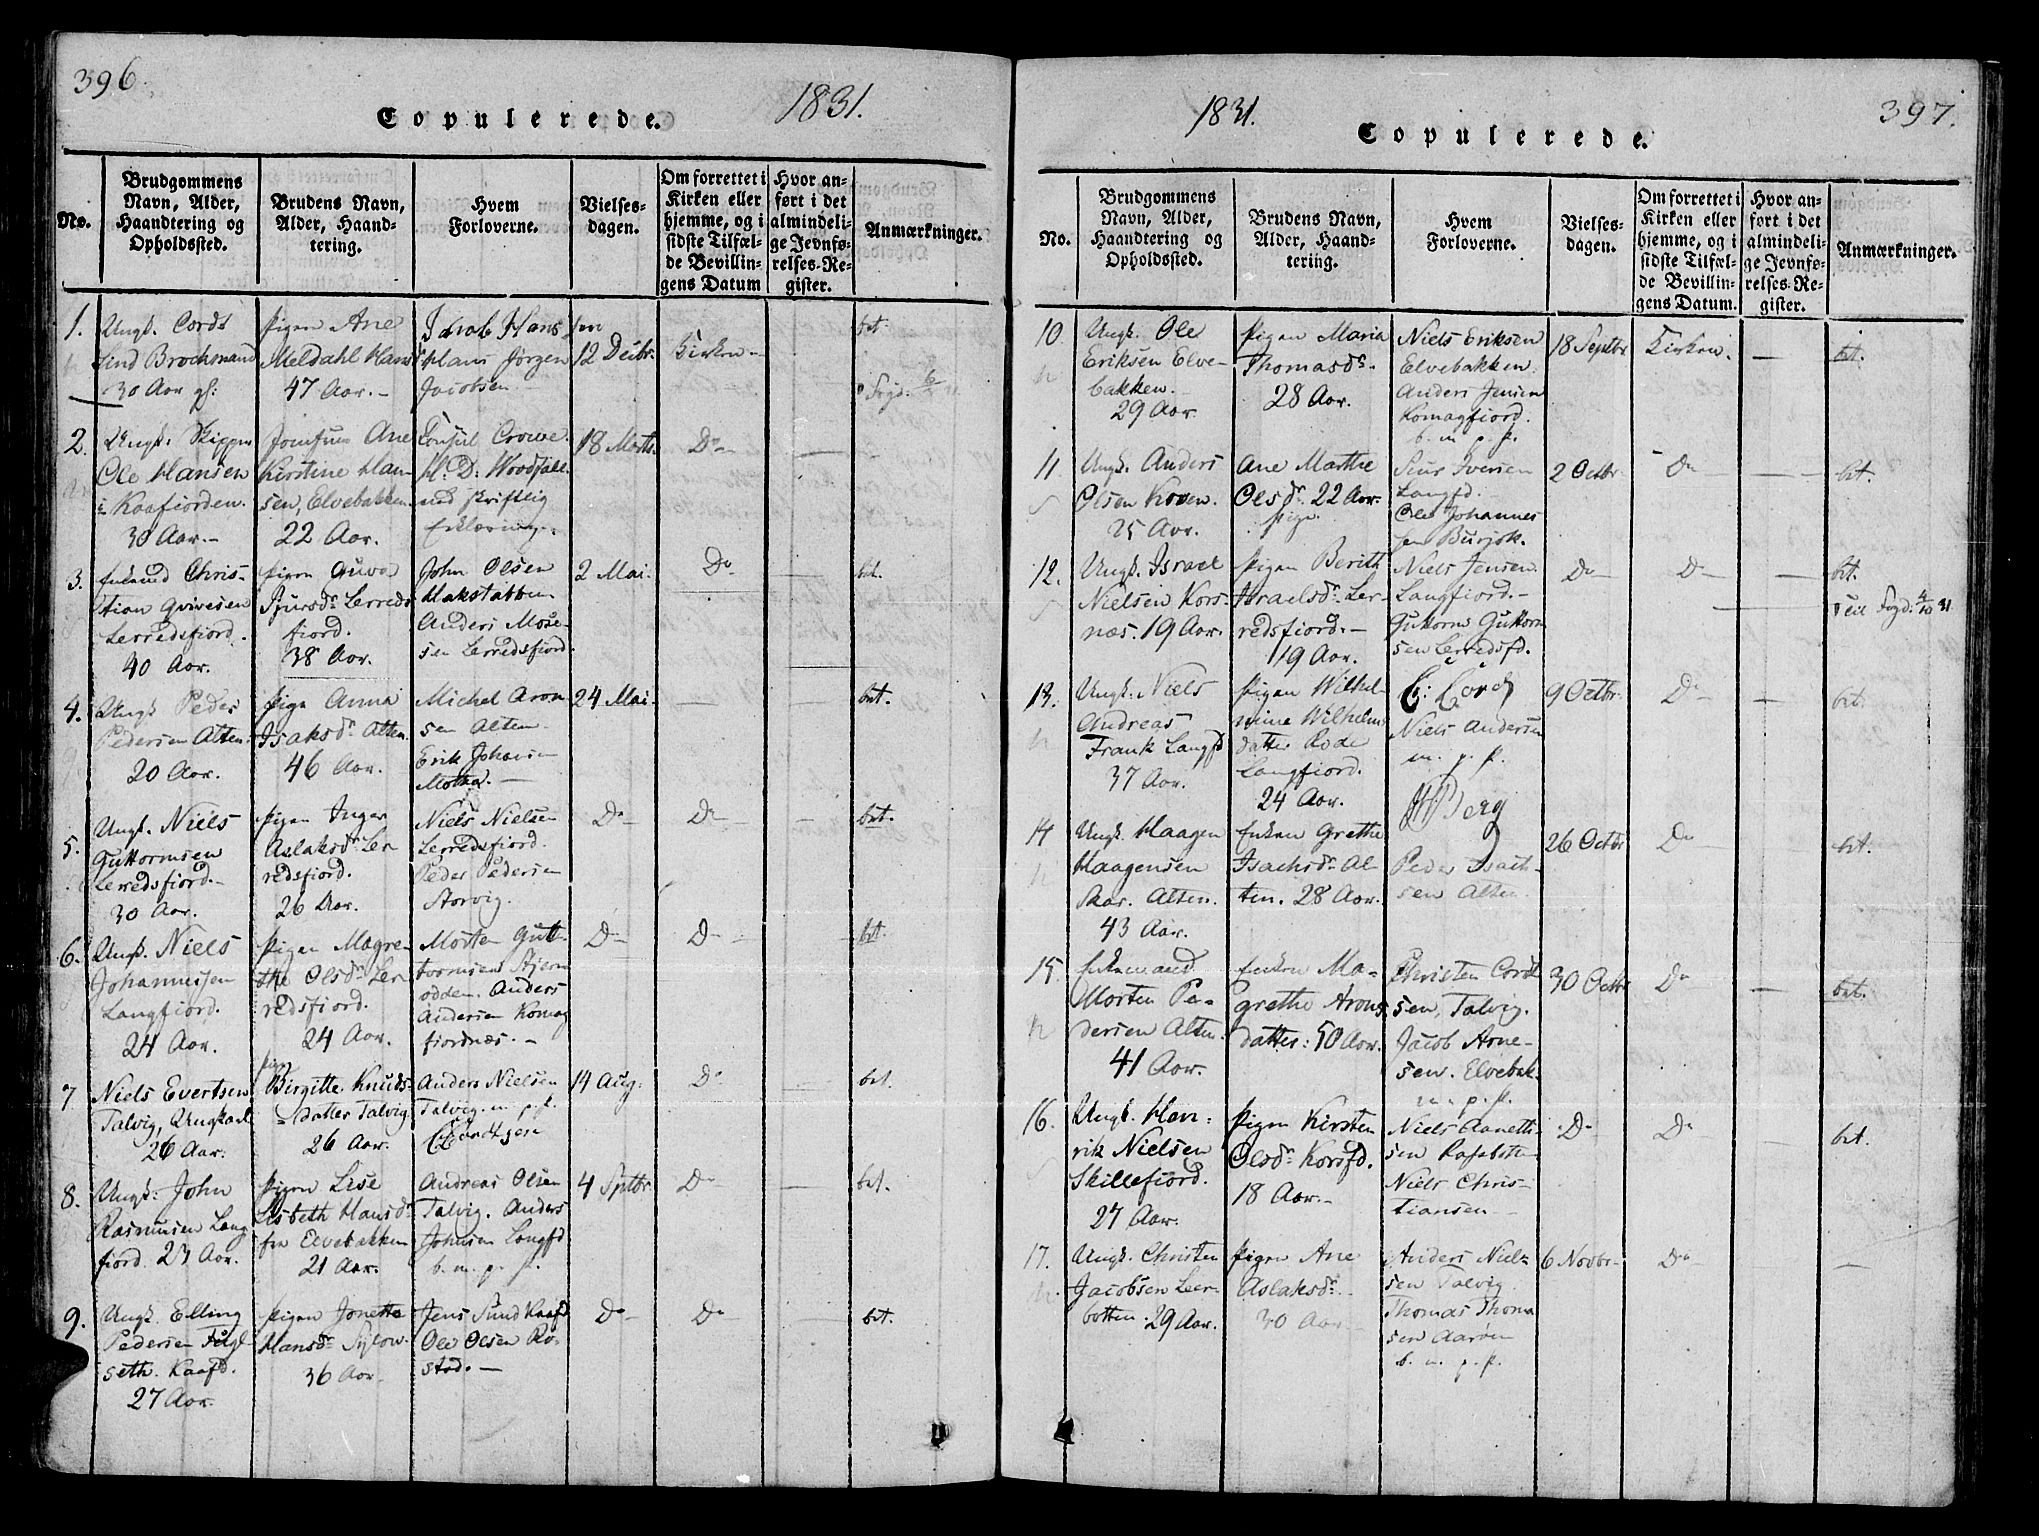 396.
Copulerede.
1831.
No.
Brudgommens Navn, Alder, Haandtering og Opholdssted.
Brudens Navn, Alder, Haandtering.
Hvem Forloverne.
Vielsesdagen.
Om forrettet i Kirken eller hjemme, og i sidste Tilfælde Bevillingens Datum
Hvor anført i det almindelige Jevnførelses-Register.
Anmærkninger.
1.
Ungk. Cordt
Sund Brochmand
30 Aar gl:
Pigen Ane
Meldahl Hans
47 Aar.-
Jacob Hans
Hans Jørgen
Jacobsen
sen
12 Decbr.
Kirken-
bet.
2.
Ungk. Skipper
Ole Hansen
i Kaafiorden.
30 Aar.-
Jomfrue Ane
Kirstine Han-
sen, Elvebakken
22 Aar.
Consul Crowe.
H: D: Woodfall
med skriftlig
Erklæring.
18 Marts.
Do
3.
Enkemd Chris-
tian
Lerredsfiord.
40 Aar.
Pigen Guva
Sjursdr. Lerreds-
fiord.
38 Aar.
John Olsen
Hakstabben
Anders Mose-
sen Lerredsfiord.
2 Mai.
Do
bet.
4.
Ungk Peder
Pedersen Alten.
20 Aar.
Pige Anna
Isaksdr. Alten.
46 Aar.
Michel Aron
sen Alten
Erik Johansen
24 Mai.
bet.
5.
Ungk. Niels
Guttormsen
Lerredsfiord.
30 Aar.
Pigen Inger
Aslaksdr. Ler
redsfiord.
26 Aar.
Niels Nielsen
Lerredsfiord.
Peder Pedersen
Storvig.
Do
Do
bet.
6.
Ungk. Niels
Johannessen
Langfiord.
24 Aar.
Pigen Magre-
the Olsdr. Ler
redsfiord.
24 Aar.
Morten Gutt-
tormsen Stjern
odden. Anders
Andersen Komag
fiordnæs.-
Do
Do
bet.
7
Niels Evertsen
Talvig, Ungkarl
26 Aar.
Pige
Birgitte Knuds-
datter Talvig
26 Aar.
Anders Nielsen
Talvig. m. p. p.
C Cordtsen
14 Aug:
Do
bet.
8.
Ungk: John
Rasmussen Lang
fiord. 23 Aar.
Pigen Lise
Lisbeth Hansdr
fra Elvebakken
21 Aar.
Andreas Olsen
Talvig. Anders
Johnsen Langfd
b. m. p. p.
4 Sptbr
Do
bet.
9.
Ungk. Elling
Pedersen Fugl-
seth. Kaafd.
27 Aar.
Pigen Jonetta
Hansdr. Sylow
36 Aar.
Jens Sund Kaafd
Ole Olsen Ro-
stad.-
Do
Do
bet.
1831.
Copulerede.
397.
No.
Brudgommens Navn, Alder, Haandtering og Opholdssted.
Brudens Navn, Alder, Haandtering.
Hvem Forloverne.
Vielsesdagen.
Om forrettet i Kirken eller hjemme, og i sidste Tilfælde Bevillingens Datum.
Hvor anført i det almindelige Jevnførelses-Register.
Anmærkninger.
10.
Ungk. Ole
Eriksen Elve-
bakken.
29 Aar.
Pigen Maria
Thomasdr.
28 Aar.
Niels Eriksen
Elvebakken.
Anders Jensen
Komagfiord.
b. m. p. p.
18 Septbr
Kirken.
bet.
11
Ungk. Anders
Olsen Koven.
25 Aar.
Ane Marthe
Olsdr. 22 Aar.
Pige.
Siur Iversen
Langfd.
Ole Johannes
sen Burjok.
2 Octbr
Do
bet.
12.
Ungk. Israel
Nielsen Kors-
næs. 19 Aar.
Pigen Berith
Israelsdr. Ler-
redsfiord.-
19 Aar.
Niels Jensen
Langfiord.-
Guttorm Guttorm
sen Lerredsfd.
Do
Do
bet.
13.
Ungk: Niels
Andreas
Frank Langfd
37 Aar.
Pigen Wilhel-
mine Wilhelms
datter Rode
Langfiord.
24 Aar.
C: Cord
Niels Andersen
m. p. p.
9 Octbr.
Do
bet.
14
Ungk. Haagen
Haagensen
Skar. Alten.
43 Aar.
Enken Grethe
Isachsdr. Al-
ten. 28 Aar.
Berg
Peder Isach-
sen Alten.
26 Octbr
Do
bet.
15.
Enkemand
Morten Pe-
dersen Alten.
41 Aar.
Enken Ma-
grethe Arons
datter: 50 Aar.
Christen Cordt
sen, Talvig.
Jacob Arne-
sen. Elvebak.
m. p. p.
30 Octbr
Do
bet.
16.
Ungk. Hen-
rik Nielsen
Skillefiord.
27 Aar.
Pigen Kirsten
Olsdr. Korsfd.
18 Aar.-
Niels Anneth-
sen Rafsbotn
Niels Chris-
tiansen-
Do
Do
bet.
17.
Ungk. Christen
Jacobsen Leer-
botten. 29 Aar.
Pigen Ane
Aslaksdr.
30 Aar.
Anders Niel-
sen Talvig.
Thomas Thoma
sen Aarøen
b. m. p. p.
6 Novbr.
Do